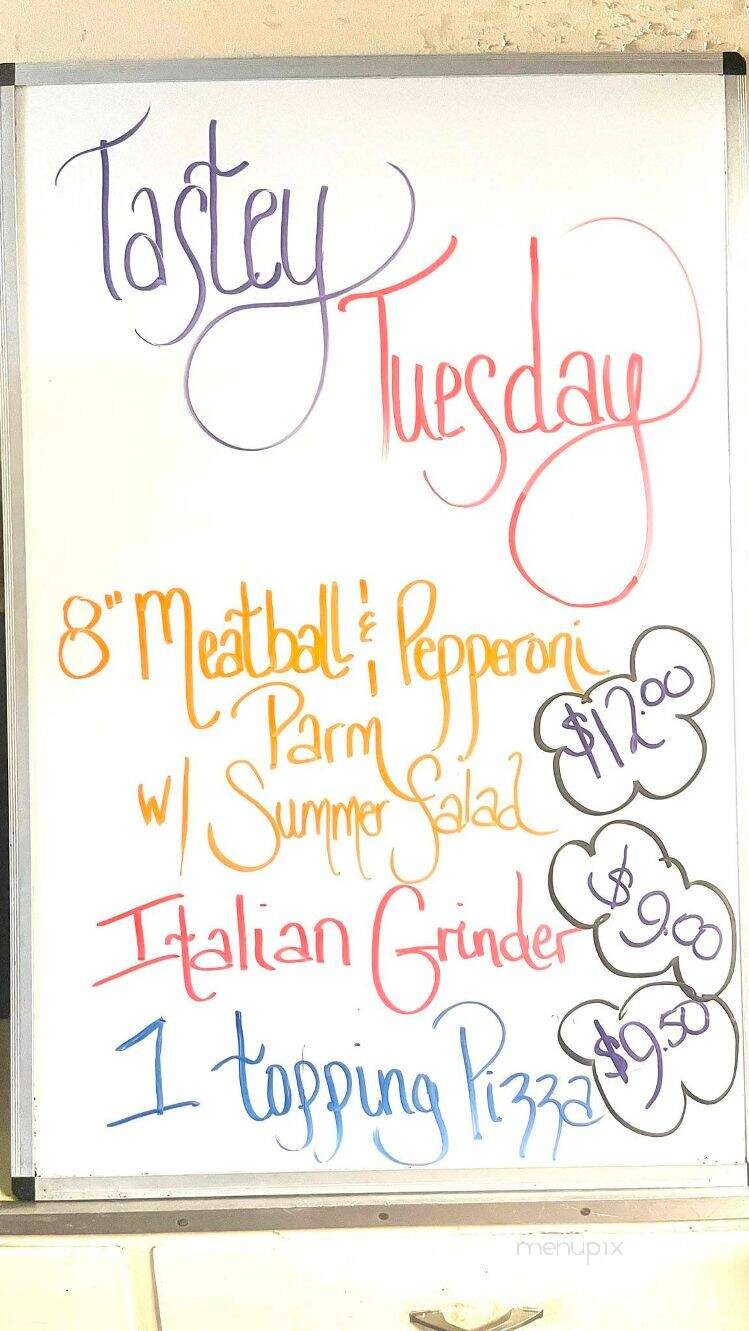 Tastey
Tuesday
8" Meatball & Pepperoni
Parm
$12.00
w/ Summer Salad
Italian Grinder
$9.00
1 topping Pizza
$9.50
menupix